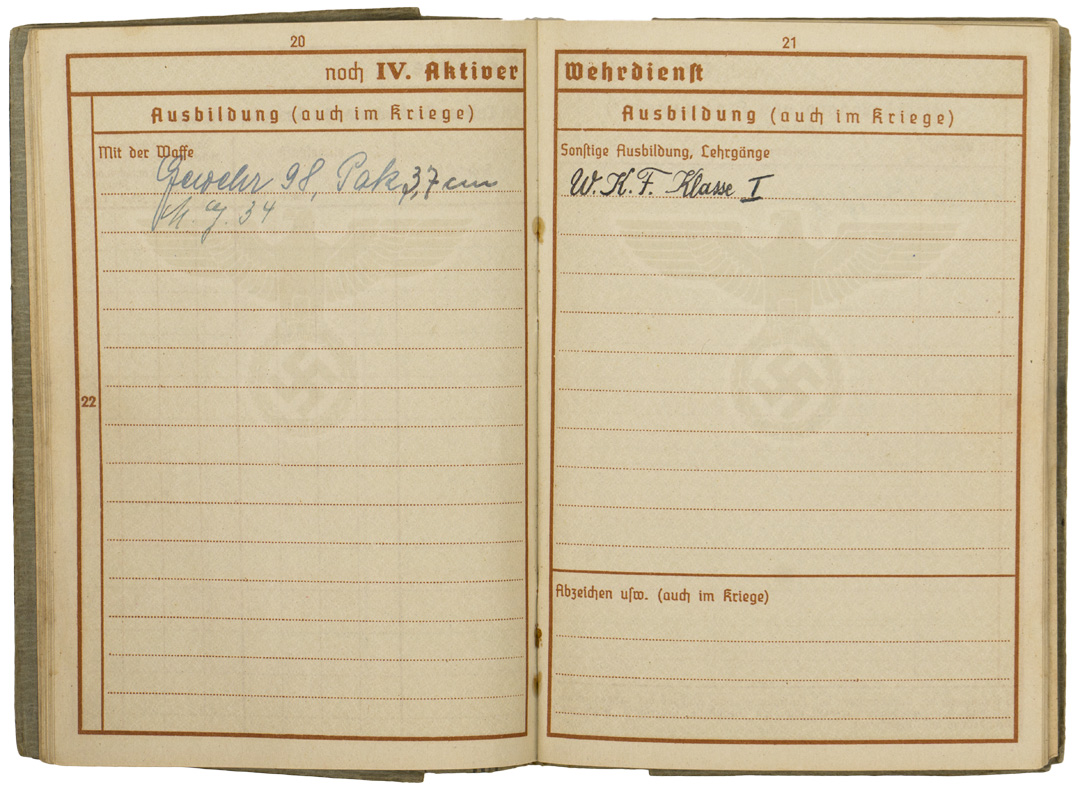 20
noch IV. Aktiver
Ausbildung (auch im Kriege)
Mit der Waffe
Gewehr 98, Pak 3,7 cm
M. G. 34
22
21
Wehrdienst
Ausbildung (auch im Kriege)
Sonstige Ausbildung, Lehrgänge
W. K. F. Klasse I
Abzeichen usw. (auch im Kriege)